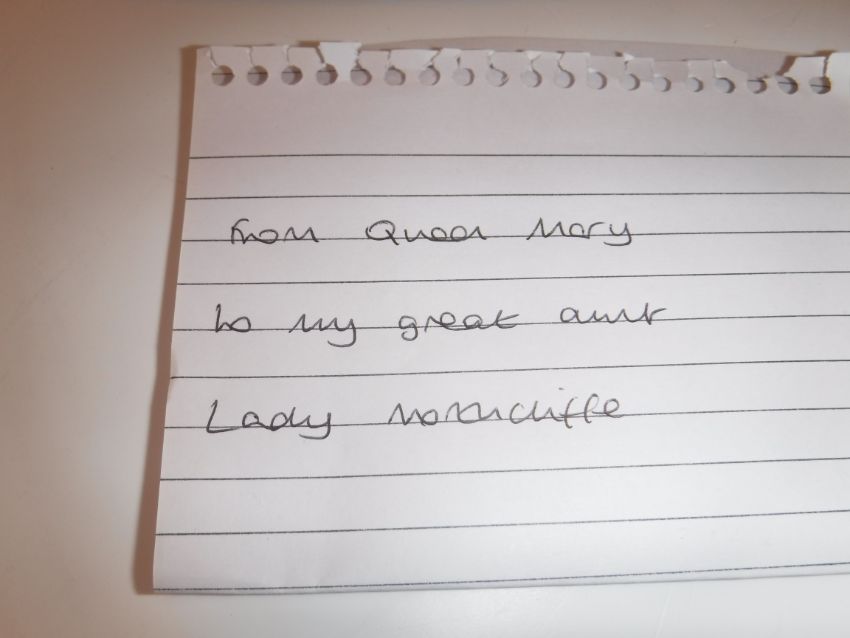 From Queen Mary
to my great aunt
Lady Northcliffe